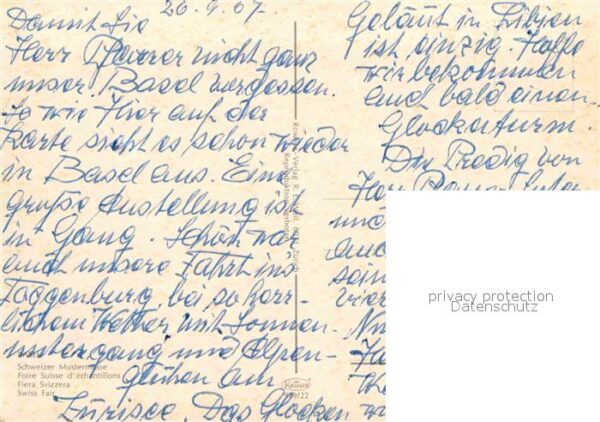 20.4.67.
Damit Sie
Herr Pfarrer nicht ganz
unser Basel vergessen.
So wie Hier auf der
Karte sieht es schon wieder
in Basel aus. Eine
große Austellung ist
in Gang. Schön war
auch unsere Fahrt ins
Toggenburg, bei so herr-
lichem Wetter mit Sonnen-
untergang und Alpen-
glühen am
Zürisee. Das Glocken
Schweizer Mustermesse
Foire Suisse d'échantillons
Fiera Svizzera
Swiss Fair
Geläut in
ist einzig. Hoffe
wir bekommen
auch bald einen
Glockenturm.
Die Predig von
Herr Pfarrer
und
auch
sein
privacy protection
Datenschutz